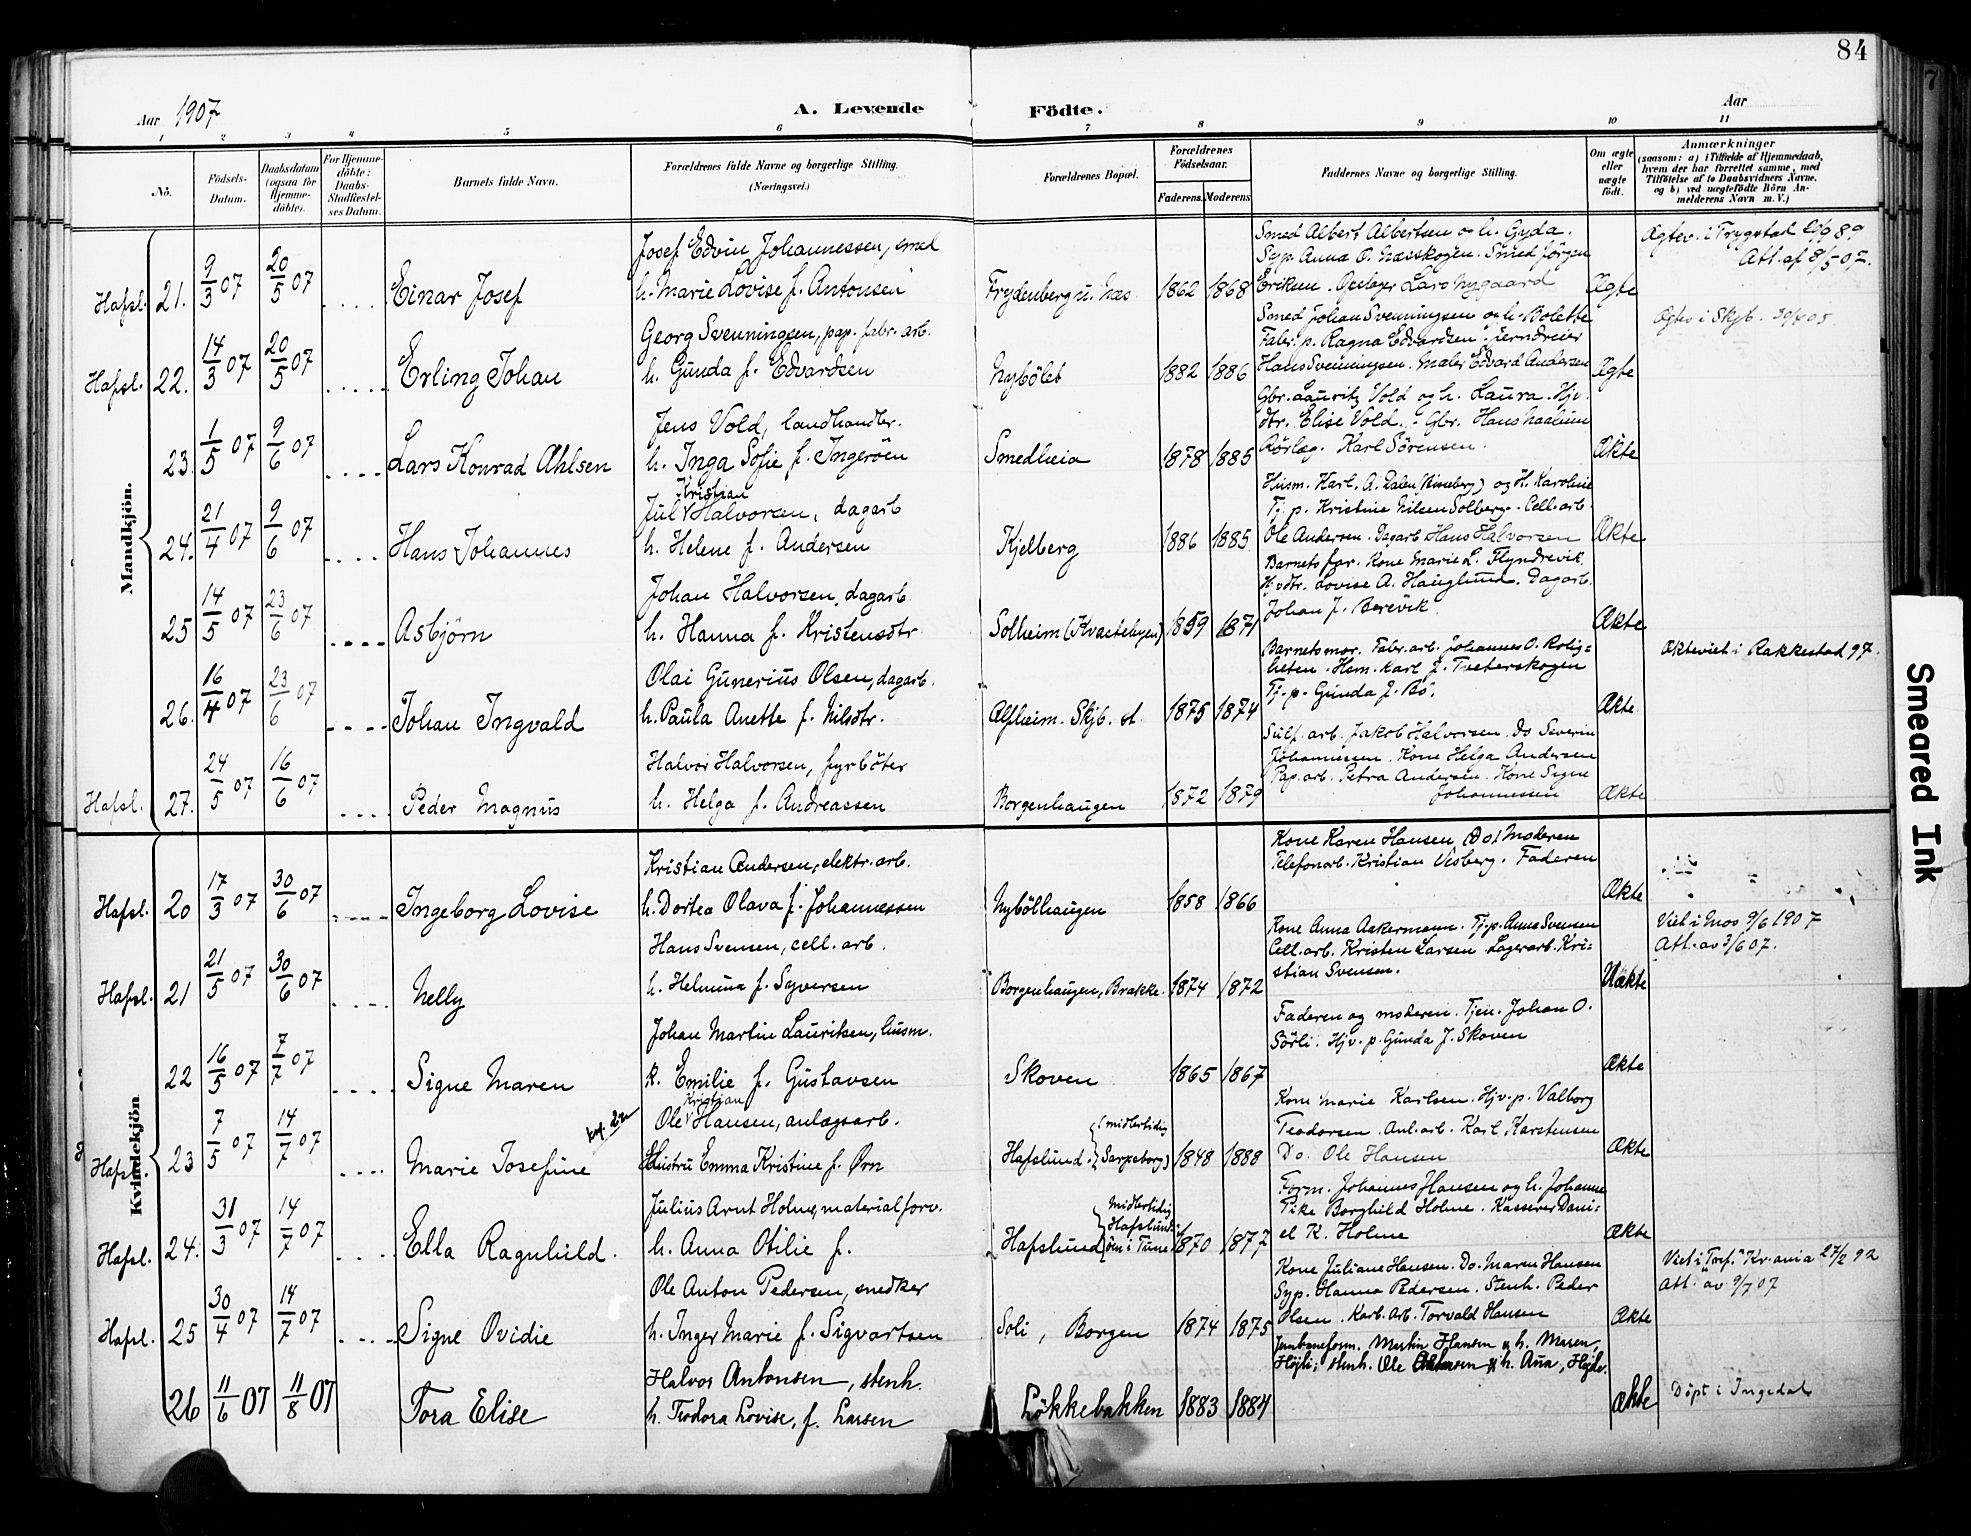 84
Aar 1907
A. Levende Födte.
Aar
1 2 3 4 5 6 7 8 9 10 11
No.
Födsels-Datum.
Daabsdatum (ogsaa for Hjemme-döbte).
For Hjemme-döbte: Daabs-Stadfestel-ses Datum.
Barnets fulde Navn.
Forældrenes fulde Navne og borgerlige Stilling. (Næringsvei.)
Forældrenes Bopæl.
Forældrenes Födselsaar.
Faderens. Moderens.
Faddernes Navne og borgerlige Stilling.
Om ægte eller uægte födt.
Anmærkninger
(saasom: a) i Tilfælde af Hjemmedaab,
hvem der har forrettet samme, med
Tilföielse af to Daabsvidners Navne,
og b) ved uægtefödte Börn An-
melderens Navn m. V.)
Mandkjön.
Hafsl. 21. 9/3 07 20/5 07 Einar Josef
Josef Edvin Johannessen, smed
h. Marie Lovise f. Antonsen
Frydenberg u. Næs 1862 1868
Smed Albert Albertsen og h. Gyda.
Syp. Anna O. Næsskogen. Smed Jörgen
Eriksen. Lars Nygaard
Ægte
Ægtev. i Trygstad 89
Att. af 8/5 07.
Hafsl. 22. 14/3 07 20/5 07 Erling Johan
Georg Svenningsen, pap. fabr. arb.
h. Gunda f. Edvardsen
Nybölet 1882 1886
Smed Johan Svenningsen og h. Bolette
Fabr. p. Ragna Edvardsen. jerndreier
Hans Svenningsen. Maler Edvard Andersen
Ægte
Ægtev i Skjb. 05
23. 1/5 07 9/6 07 Lars Konrad Ahlsen
Jens Vold, landhandler.
h. Inga Sofie f. Ingeröen
Smedheia 1878 1885
Gbr. Lauritz Vold og h. Laura. Hjv.
dtr. Elise Vold. - Gbr. Hans Naalum
Rörlæg. Karl Sörensen.
Ækte
24. 21/4 07 9/6 07 Hans Johannes
Kristian
Jul Halvorsen, dagarb
h. Helene f. Andersen
Kjelberg 1886 1885
Husm. Karl. A. Dalen og H. Karoline
Tj. p. Kristine Nilsen Solberg. Cell. arb.
Ole Andersen. Dagarb Hans Halvorsen
Ækte
25 14/5 07 23/6 07 Asbjörn
Johan Halvorsen, dagarb.
h. Hanna f. Kristensdtr
Solheim 1859 1871
Barnets far. Kone Marie L. Flyndrevik.
Hjvdtr. Lovise A. Hauglund. Dagarb.
Johan J. Berevik.
Ækte
26. 16/4 07 23/6 07 Johan Ingvald
Olai Gunerius Olsen, dagarb.
h. Paula Anette f. Nilsdtr.
Alfheim. Skjb. st. 1875 1874
Barnets mor. Fabr. arb. Johannes O. Rolig=
heten. Hsm. Karl J. Tveterskogen
Tj. p. Gunda J. Bö.
Ækte
Ækteviet i Rakkestad 97.
Hafsl. 27. 24/5 07 16/6 07 Peder Magnus
Halvor Halvorsen, fyrböter
h. Helga f. Andreassen
Borgenhaugen 1872 1879
Sulf. arb. Jakob Halvorsen. Do Severin
Johannessen. Kone Helga Andersen
Pap. arb. Petra Andersen. Kone Signe
Johannessen
Ækte
Kvindekjön.
Hafsl. 20 17/3 07 30/6 07 Ingeborg Lovise
Kristian Andersen, elektr. arb.
h. Dortea Olava f. Johannessen
Nybölhaugen 1858 1866
Kone Karen Hansen (Do) Moderen
Telefonarb. Kristian Visberg. Faderen
Ækte
Hafsl. 21 21/5 07 30/6 07 Nelly
Hans Svensen, cell. arb.
h. Helmina f. Syversen
Borgenhaugen, Brakke. 1874 1872
Kone Anna Askermann. Tj. p. Anna Svensen
Cell. arb. Kristen Larsen. Lagerarb. Kri=
stian Svensen.
Uækte
Viet i Mos 9/6 1907
Att. av 3/6 07.
22 16/5 07 7/7 07 Signe Maren
Johan Martin Lauritsen, husm.
k. Emilie f. Gustavsen
Skoven 1865 1867
Faderen og moderen. Tjen. Johan O.
Sörli. Hjv. p. Gunda J. Skoven
Ækte
Hafsl. 23 7/5 07 14/7 07 Marie Josefine
Kristian
Ole Hansen, anlægsarb.
Hustru Emma Kristine f. Ørn
Hafslund. (midlertidig Sarpsborg) 1848 1888
Kone Marie Karlsen. Hjv. p. Valborg
Teodorsen. Anl. arb. Karl Karstensen
Do. Ole Hansen
Ækte
Hafsl. 24. 31/3 07 14/7 07 Ella Ragnhild.
Julius Arnt Holme, materialforv.
h. Anna Otilie f.
Hafslund (midlertidig Hafslunds ö i Tune) 1870 1877
Form. Johannes Hansen og h. Johanne
Pike Borghild Holme. Kasserer Dani=
el K. Holme
Ækte
Hafsl. 25 30/4 07 14/7 07 Signe Ovidie
Ole Anton Pedersen, snedker
h. Inger Marie f. Sigvartsen
Soli, Borgen 1874 1875
Kone Juliane Hansen. Do. Maren Hansen
Syp. Hanna Pedersen. Stenh. Peder
Olsen. Karb. arb. Torvald Hansen
Ækte
Viet i Kr.ania 27/2 92
Att. av 9/7 07
26 11/6 07 11/8 07 Tora Elise
Halvor Antonsen, stenh.
h. Teodora Lovise, f. Larsen
Lökkebakken 1883 1884
Jernbaneform. Martin Hansen & h. Maren,
Höjli; stenh. Ole & h. Ana,
Ækte
Döpt i Ingedal
Smeared Ink
7